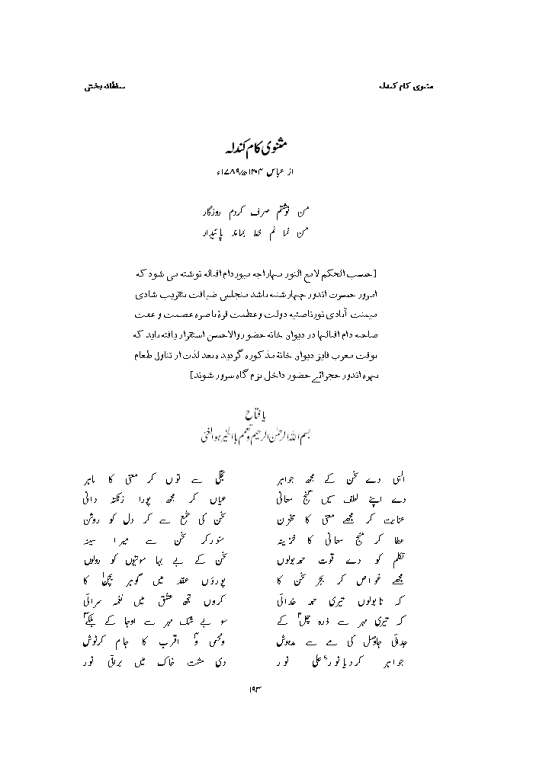 مثنوی کام کندلہ
سلطانہ بخش
مثنوی کام کندلہ
از عباس ۱۲۰۴ھ/۱۷۸۹ء
من نوشتم صرف کردم روزگار
من نما نم خط بماند پائیدار
[حسب الحکم لامع النور مہاراجہ بہادر دام اقبالہ نوشتہ می شود کہ
امروز حضرت اندور چہارشنبہ باشد مجلس ضیافت بتقریب شادی
میمنت آبادی نور ناصیہ دولت و عظمت قرۃ باصرہ عصمت و عفت
صاحبہ دام اقبالہا در دیوان خانہ حضور والا حسن استقرار یافتہ باید کہ
بوقت مغرب فایز دیوان خانۂ مذکورہ گردیدہ بعد لذت از تناول طعام
بہرہ اندوز مجرائے حضور داخل بزم گاہ سرور شوند]
یا فتاح
بسم اللہ الرحمٰن الرحیم و تمم بالخیر ہوالغنی
الٰہی دے سخن کے مجھ جواہر
تجلی سے توں کر معنی کا ماہر
دے اپنے لطف سیں گنج معانی
عیاں کر مجھ پورا نکتہ دانی
عنایت کر مجھے معنی کا مخزن
سخن کی شمع سے کر دل کو روشن
عطا کر گنج معانی کا خزینہ
منور کر سخن سے میرا سینہ
قلم کو دے قوت حمد بولوں
سخن کے بے بہا موتیوں کو رولوں
مجھے غواص کر بحر سخن کا
پوروؤں عقد میں گوہر بچن کا
کہ تا بولوں تیری حمد خدائی
کروں تجھ عشق میں نغمہ سرائی
کہ تیری مہر سے ذرہ چل کے
سو بے شک مہر سے اوجا کے بلکے
جدائی جا وصل کی مے سے مدہوش
ونحنی و اقرب کا جام کر نوش
جواہر کر دیا نور علی نور
دی مشت خاک میں براقی نور
۱۹۳